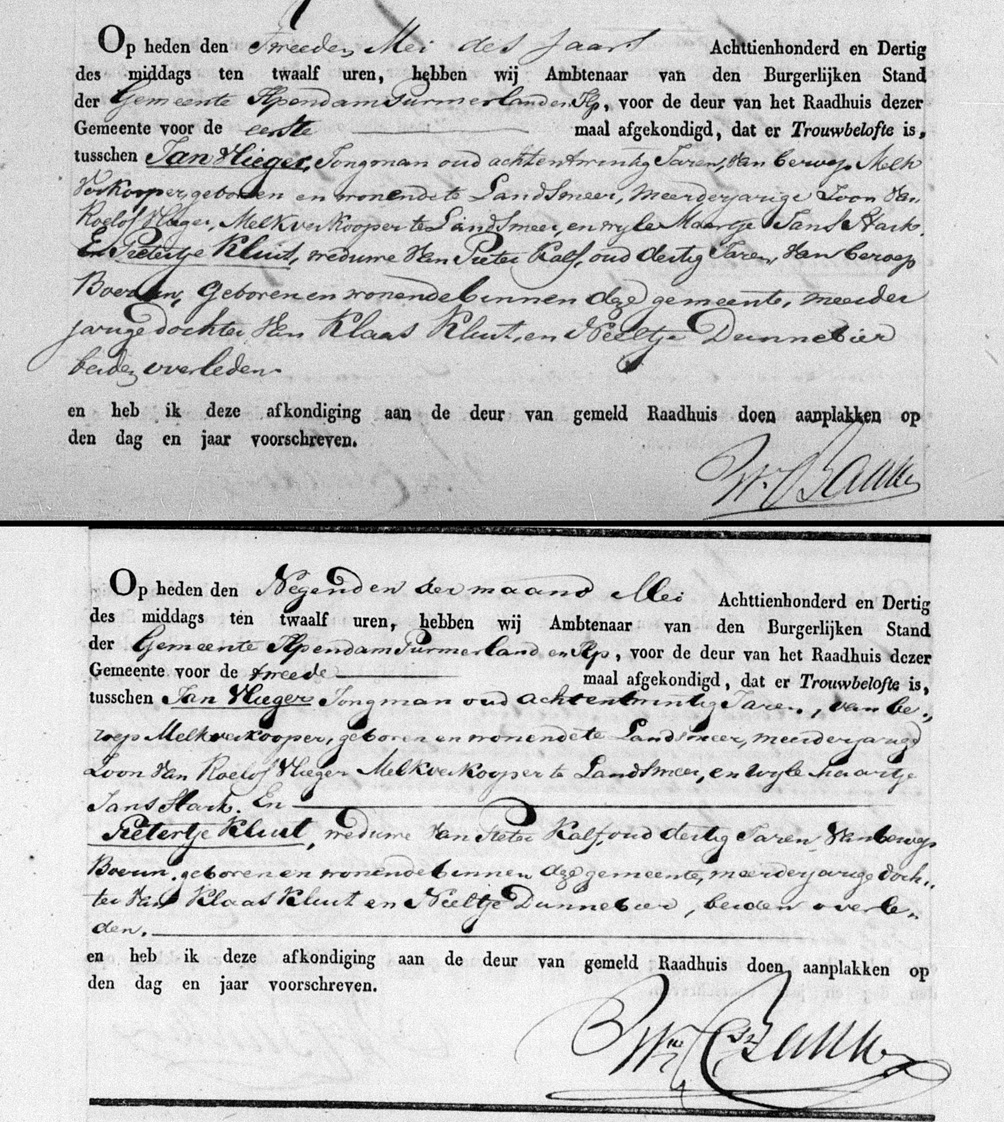 Op heden den Tweeden Mei des Jaars Achttienhonderd en Dertig
des middags ten twaalf uren, hebben wij Ambtenaar van den Burgerlijken Stand
der Gemeente Ilpendam Purmerland en Ilp, voor de deur van het Raadhuis dezer
Gemeente voor de eerste maal afgekondigd, dat er Trouwbelofte is,
tusschen Jan Vlieger, Jongman oud achtentwintig Jaren, Van beroep Melk
Verkooper, geboren en wonende te Landsmeer, meerderjarige Zoon Van
Roelof Vlieger, Melkverkooper te Landsmeer, en wyle Maartje Jans Stark.
En Pietertje Kluit, weduwe Van Pieter Kalf, oud dertig Jaren, Van beroep
Boerin, Geboren en wonende binnen deze gemeente, meerder
jarige dochter Van Klaas Kluit, en Neeltje Dunnebier
beiden overleden
en heb ik deze afkondiging aan de deur van gemeld Raadhuis doen aanplakken op
den dag en jaar voorschreven.
Op heden den Negenden der maand Mei Achttienhonderd en Dertig
des middags ten twaalf uren, hebben wij Ambtenaar van den Burgerlijken Stand
der Gemeente Ilpendam Purmerland en Ilp, voor de deur van het Raadhuis dezer
Gemeente voor de tweede maal afgekondigd, dat er Trouwbelofte is,
tusschen Jan Vlieger Jongman oud achtentwintig Jaren, van be-
roep Melkverkooper, geboren en wonende te Landsmeer, meerderjarige
Zoon Van Roelof Vlieger Melkverkooper te Landsmeer, en wyle Maartje
Jans Stark. En
Pietertje Kluit, weduwe Van Pieter Kalf, oud dertig Jaren, Van beroep
Boerin, geboren en wonende binnen deze gemeente, meerderjarige doch-
ter Van Klaas Kluit en Neeltje Dunnebier, beiden overle-
den.
en heb ik deze afkondiging aan de deur van gemeld Raadhuis doen aanplakken op
den dag en jaar voorschreven.